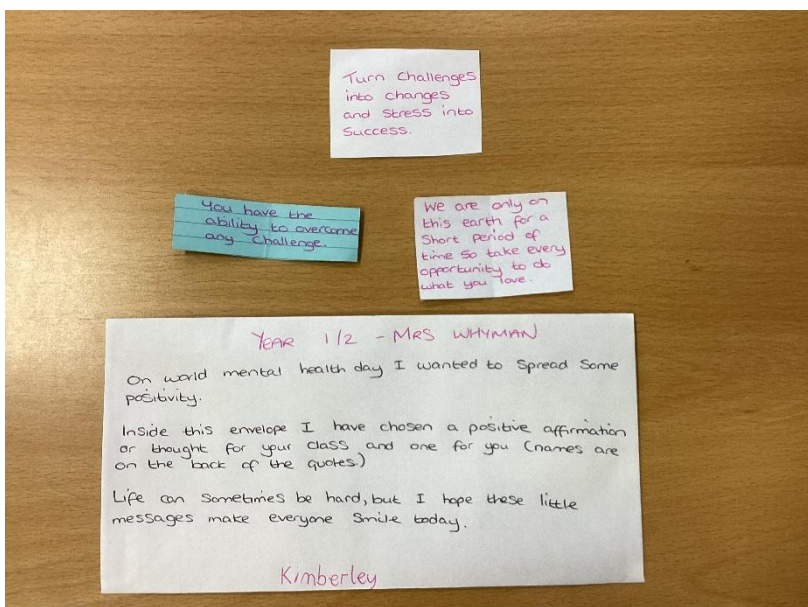 Turn Challenges
into changes
and stress into
Success.
You have the
ability to overcome
any challenge.
We are only on
this earth for a
Short period of
time so take every
opportunity to do
what you love.
YEAR 1/2 - MRS WHYMAN
On world mental health day I wanted to spread some
positivity.
Inside this envelope I have chosen a positive affirmation
or thought for your class and one for you (names are
on the back of the quotes.)
Life can sometimes be hard, but I hope these little
messages make everyone smile today.
Kimberley